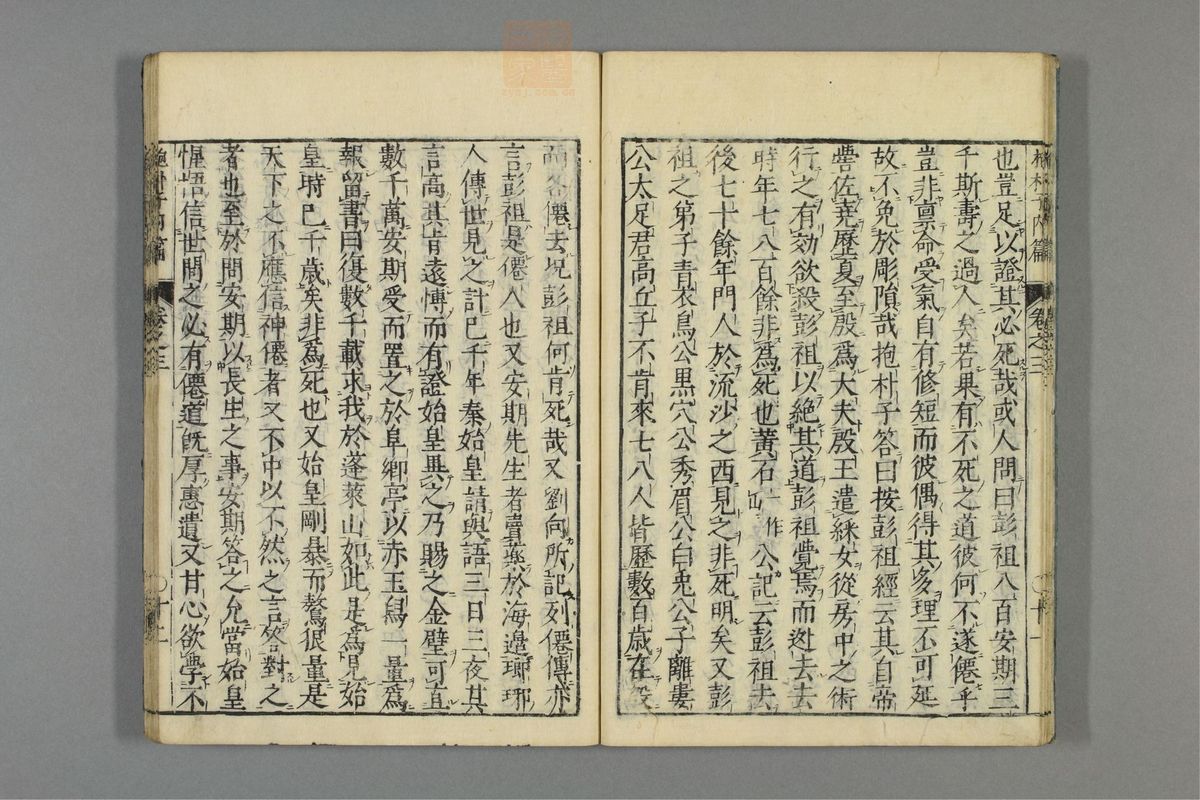 抱朴子內篇 卷之三 〇十一
也豈足以證其必死哉或人問曰彭祖八百安期三
千斯壽之過人矣若果有不死之道彼何不遂僊乎
豈非禀命受氣自有修短而彼偶得其多理不可延
故不免於彫隕哉抱朴子答曰按彭祖經云其自帝
嚳佐堯歷夏至殷爲大夫殷王遣綵女從房中之術
行之有効欲殺彭祖以絕其道彭祖覺焉而迯去去
時年七八百餘非爲死也黃石一作山公記云彭祖去
後七十餘年門人於流沙之西見之非死明矣又彭
祖之第子青衣烏公黑穴公秀眉公白兎公子離婁
公太足君高丘子不肯來七八人皆歷數百歲在殷
而各僊去况彭祖何肯死哉又劉向所記列僊傳亦
言彭祖是僊人也又安期先生者賣藥於海邊瑯琊
人傳世見之計已千年秦始皇請與語三日三夜其
言高其肯遠博而有證始皇異之乃賜之金璧可直
數千萬安期受而置之於阜鄉亭以赤玉舄一量爲
報留書曰復數千載求我於蓬萊山如此是爲見始
皇時已千歲矣非爲死也又始皇剛暴而驁很最是
天下之不應信神僊者又不中以不然之言答對之
者也至於問安期以長生之事安期答之允當始皇
惺悟信世間之必有僊道旣厚惠遺又甘心欲學不
抱朴子內篇 卷之三 〇十二